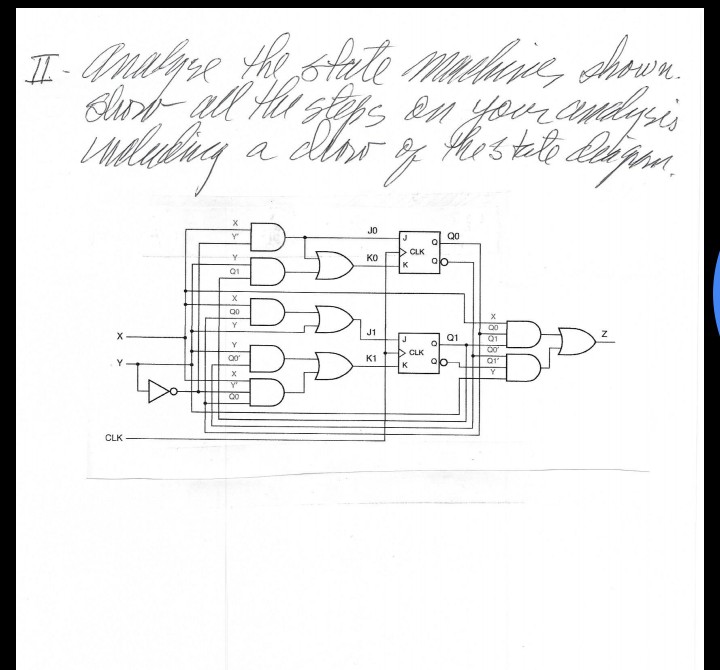 II - Analyze the state machine, shown.
show all the steps on your analysis
including a draw of the state diagram.
X
Y'
Y
Q1
X
Q0
Y
Y
Q0'
X
Y'
Q0
X
Y
CLK
J0
K0
J
CLK
K
Q
Q
Q0
J1
K1
J
CLK
K
Q
Q
Q1
X
Q0
Q1
Q0'
Q1'
Y
Z